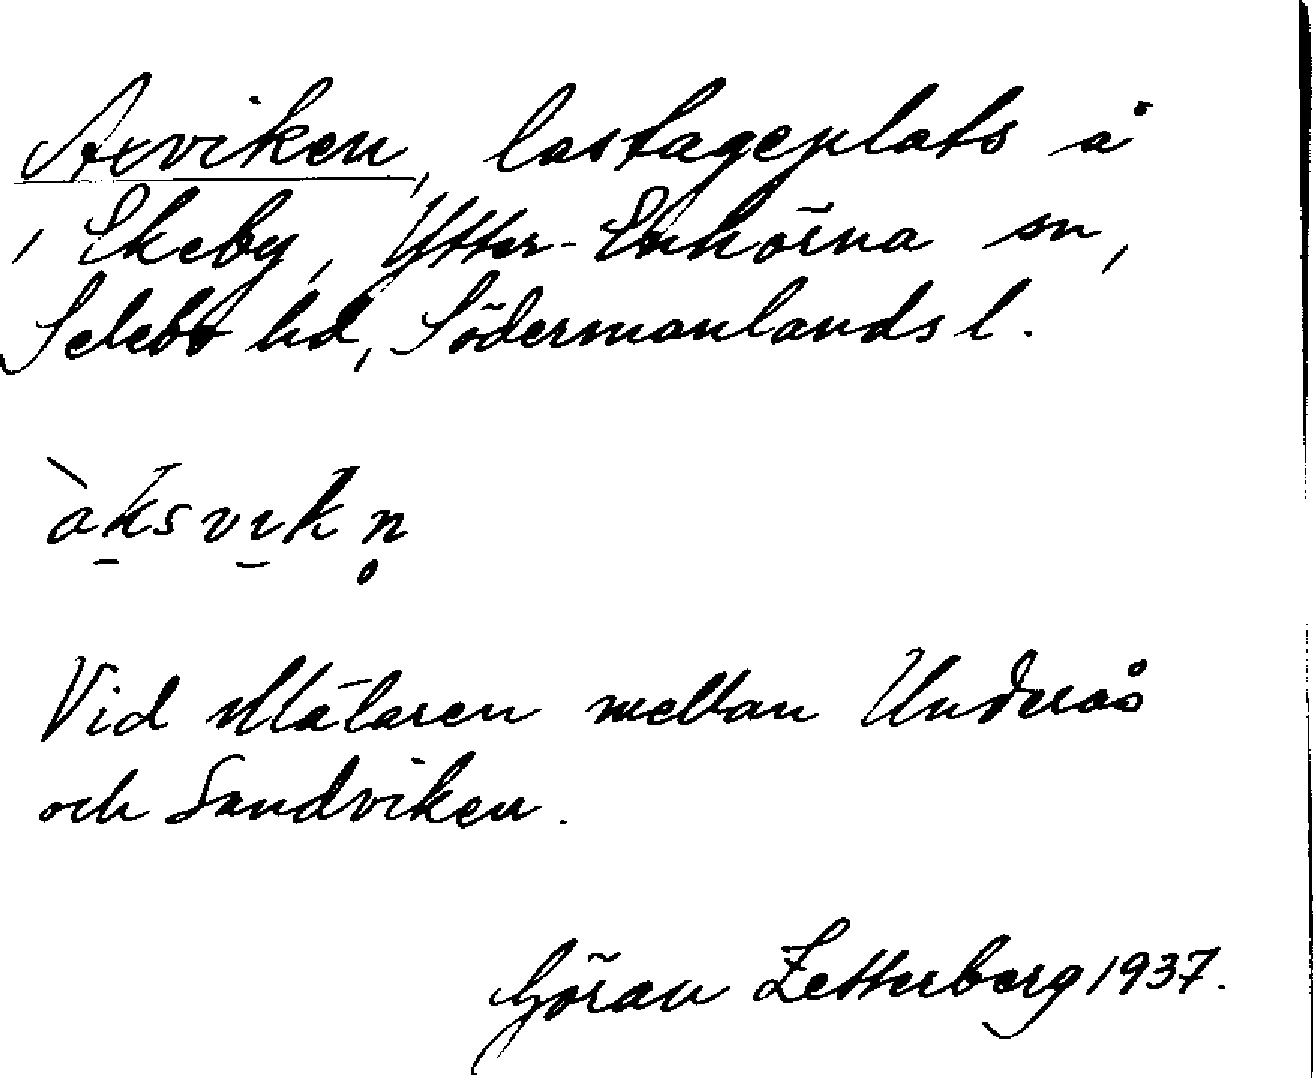 Axviken, lastageplats å
, Ekeby, Ytter-Enhörna sn,
Selebo hd, Södermanlands l.
àksvik n̥
Vid Mälaren mellan Underås
och Sandviken.
Göran Zetterberg 1937.